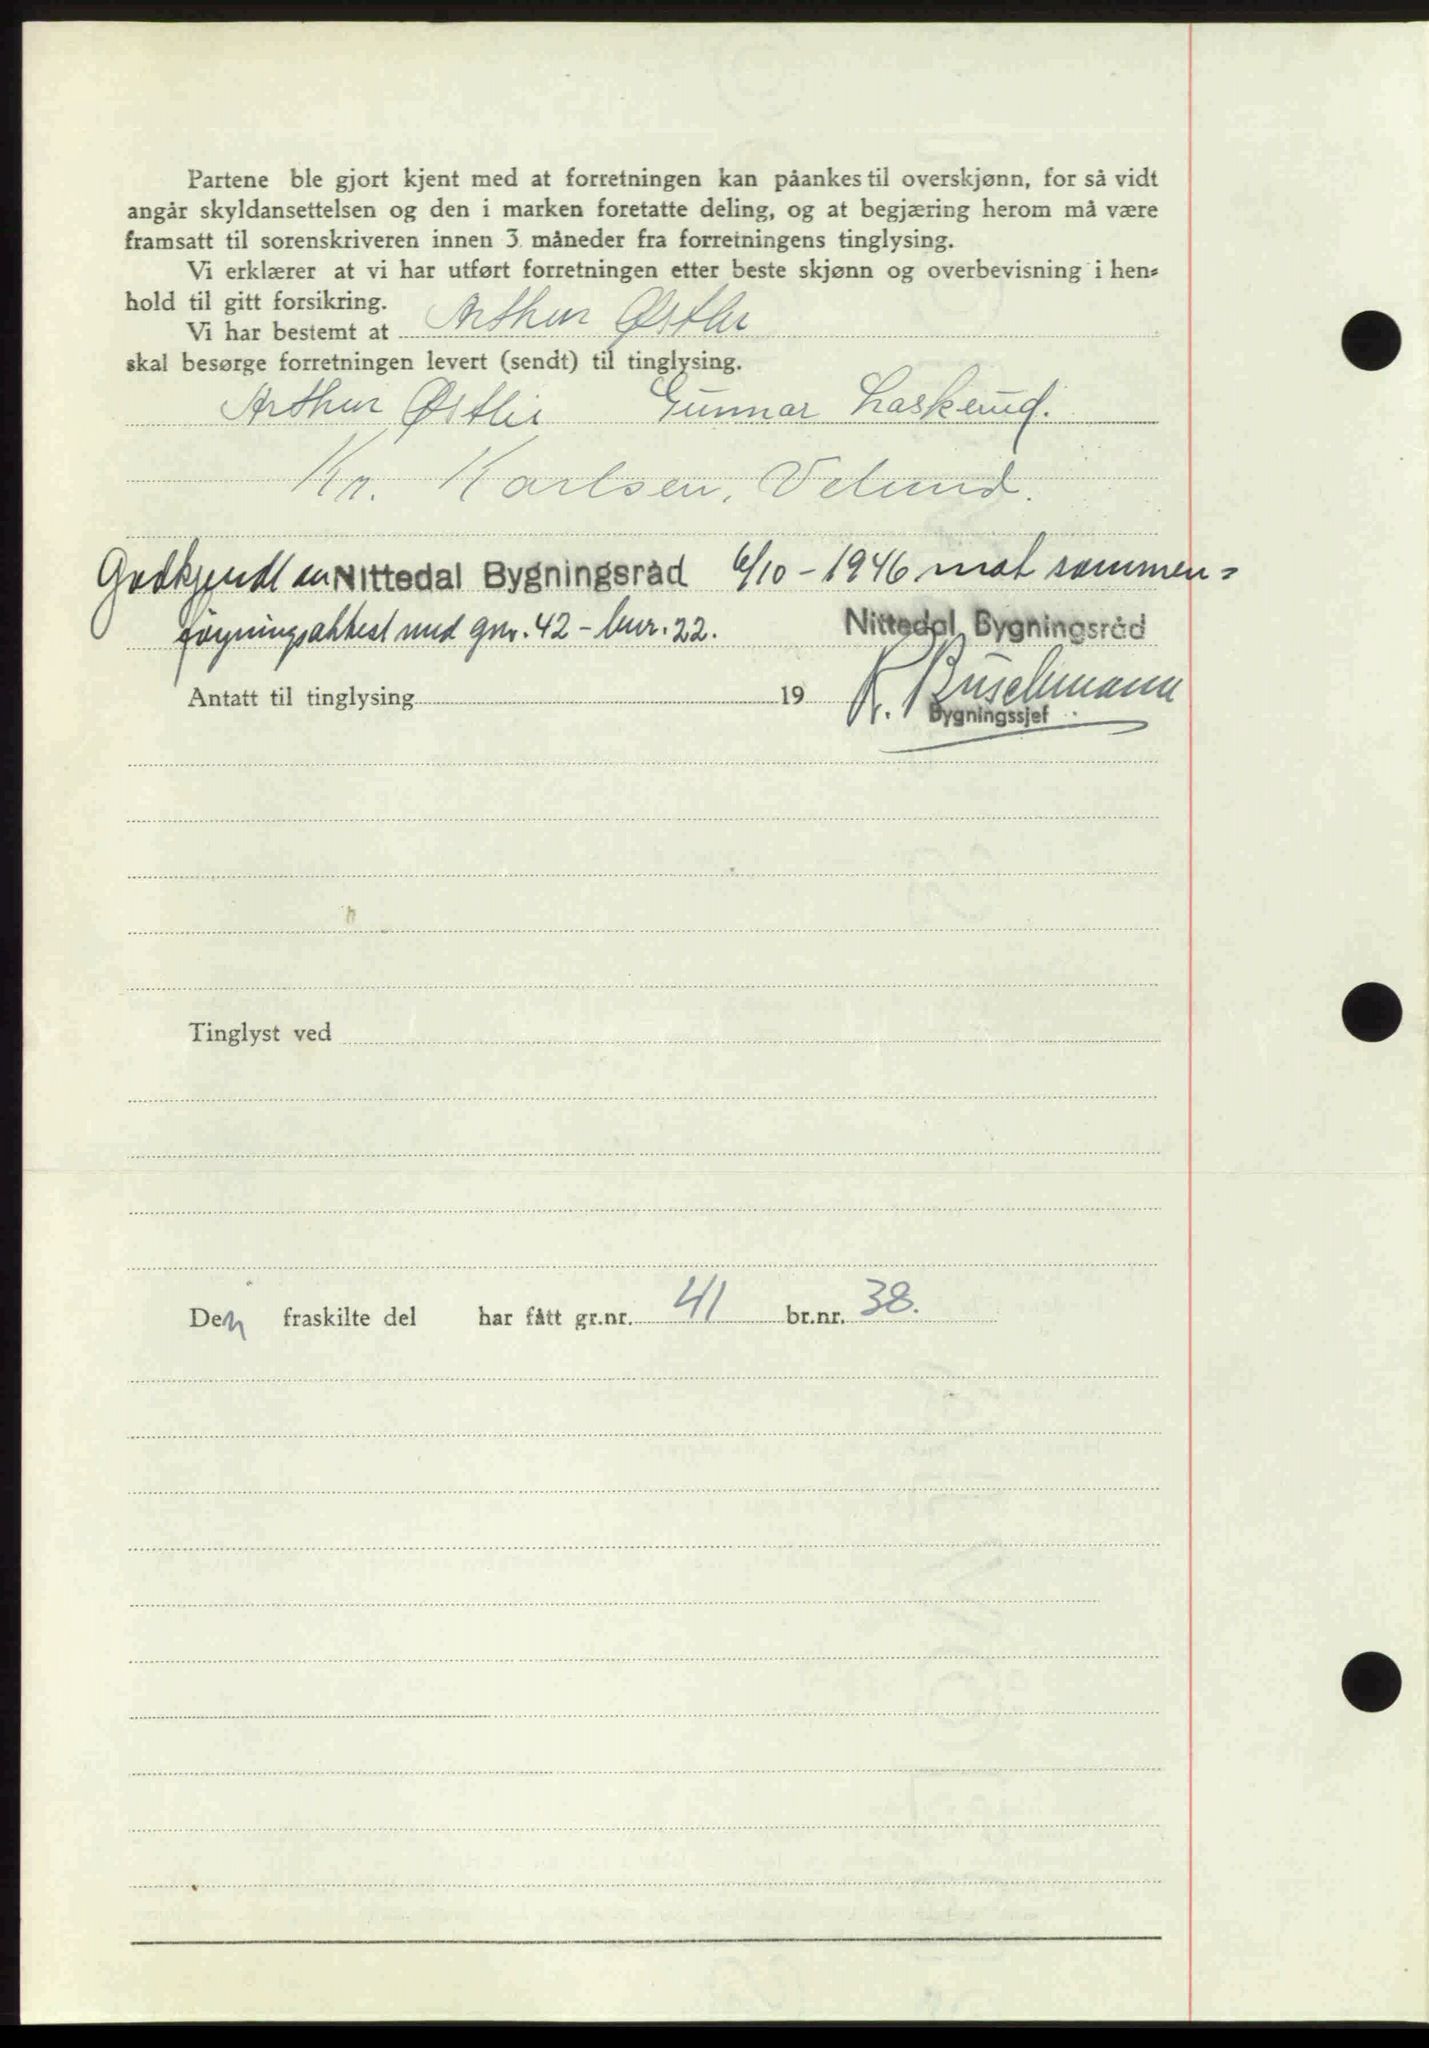 Partene ble gjort kjent med at forretningen kan påankes til overskjønn, for så vidt
angår skyldansettelsen og den i marken foretatte deling, og at begjæring herom må være
framsatt til sorenskriveren innen 3 måneder fra forretningens tinglysing.
Vi erklærer at vi har utført forretningen etter beste skjønn og overbevisning i hen=
hold til gitt forsikring.
Vi har bestemt at Arthur Østlie
skal besørge forretningen levert (sendt) til tinglysing.
Arthur Østlie Gunnar Laskerud.
Kr. Karlsen, Velund.
Godkjendt av Nittedal Bygningsråd 6/10 - 1946 mot sammen=
føyningsattest med gnr. 42 - bnr. 22. Nittedal Bygningsråd
Antatt til tinglysing 19 K. Buschmann
Bygningssjef
Tinglyst ved
Den fraskilte del har fått gr.nr. 41 br.nr. 38.